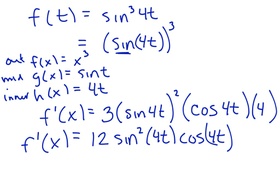 f(t) = sin³ 4t
= (sin(4t))³
out f(x) = x³
mid g(x) = sin t
inner h(x) = 4t
f'(x) = 3(sin 4t)² (cos 4t)(4)
f'(x) = 12 sin² (4t) cos(4t)